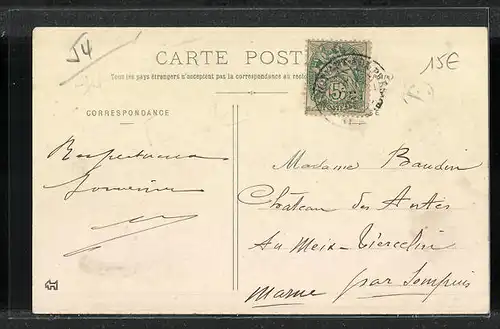 54
CARTE POST
15E
Tous les pays étrangers n'acceptent pas la correspondance au
CORRESPONDANCE
5c
Respectueux
Souvenirs
Madame Baudin
Château des
Au Meix-Tiercelin
Marne par Sompuis